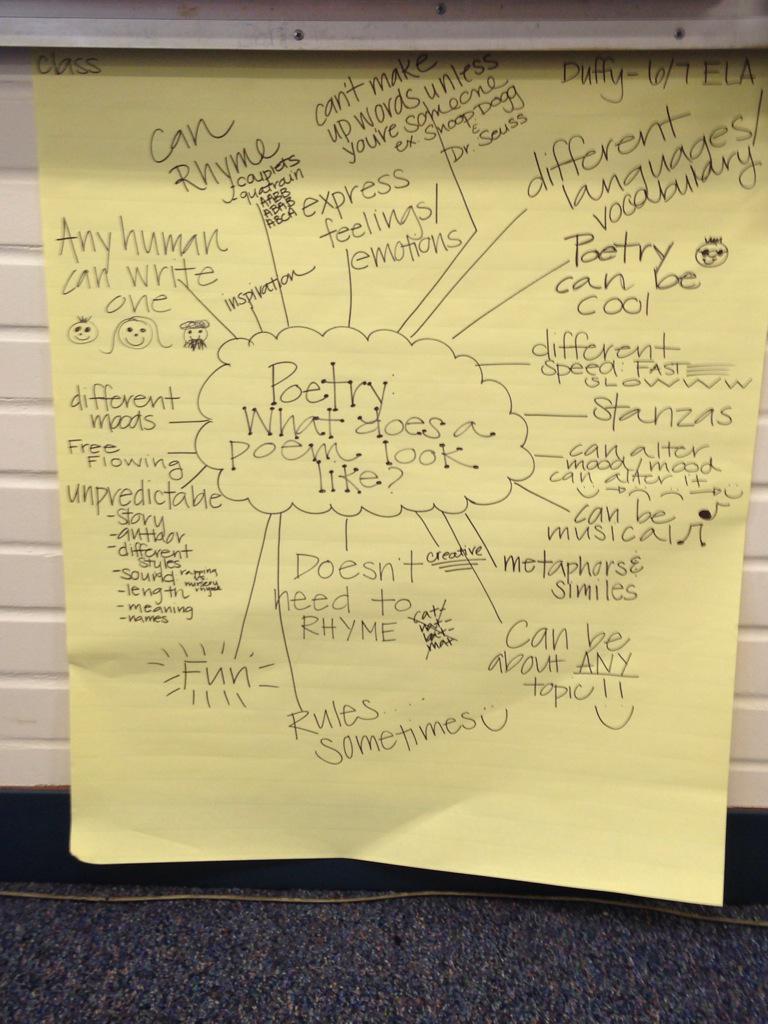 class
Duffy- 6/7 ELA
can't make
up words unless
you're someone
ex Snoop Dogg
&
Dr. Seuss
can
Rhyme
couplets
quatrain
AABB
ABAB
ABCA
express
feelings/
emotions
different
languages/
vocabulary
Any human
can write
one
inspiration
Poetry
can be
cool
different
speed: FAST
SLOWWWW
Poetry:
What does a
poem look
like?
different
moods
stanzas
Free
Flowing
can alter
mood/mood
can alter it
unpredictable
-story
-author
-different
styles
-sound rapping
vs
nursery
rhyme
-length
-meaning
-names
can be
musical
Doesn't
need to
RHYME
cat/
hat-
bat-
mat
creative
metaphors &
similes
Can be
about ANY
topic!!
Fun
Rules.....
sometimes